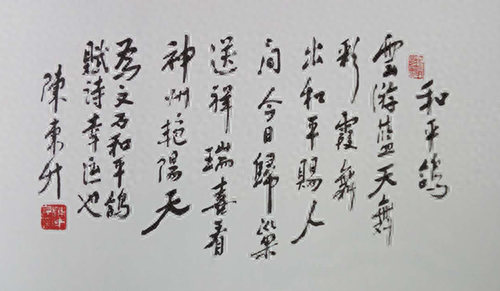 和平鴿
雲游蓝天舞
彩霞舞
出和平賜人
间今日歸巢
送祥瑞喜看
神州艳陽天
为文 和平鴿
賦詩幸 也
陳東升